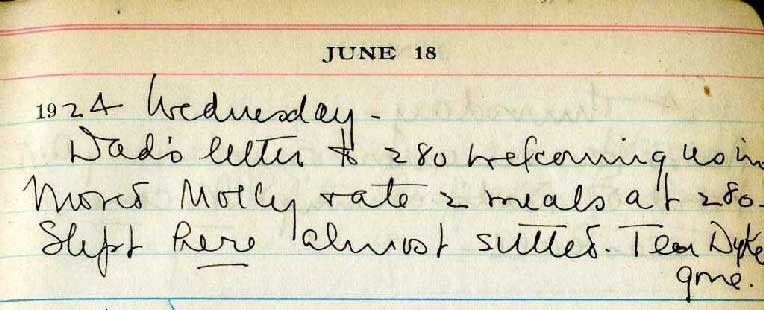 JUNE 18
1924 Wednesday -
Dad's letter to 280 welcoming us in
Moved Molly rate 2 meals at 280-
Slept here almost settled. Ten Dyke
gone.